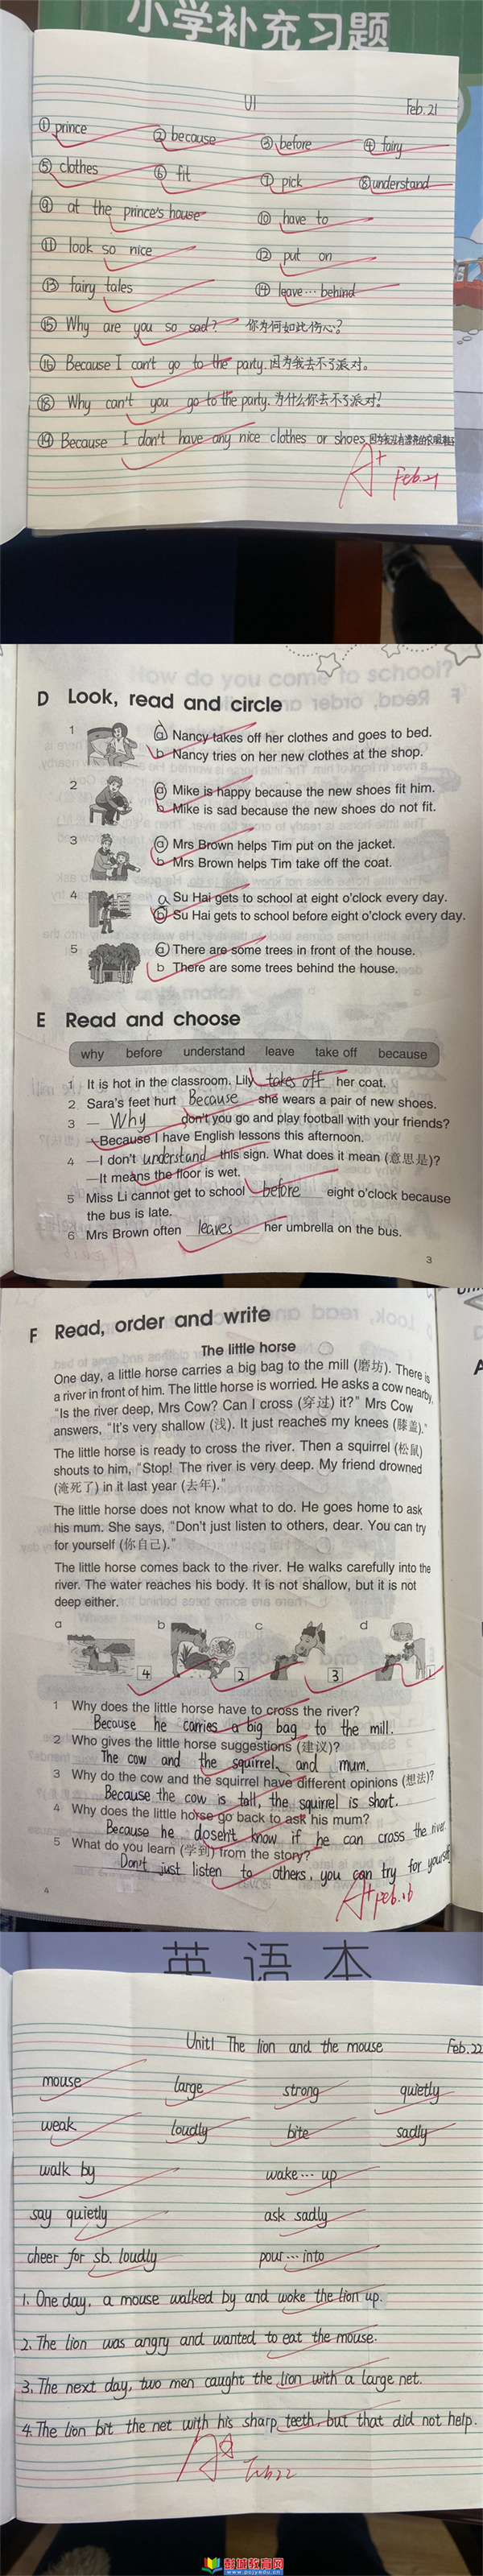 小学补充习题
U1 Feb.21
① prince ② because ③ before ④ fairy
⑤ clothes ⑥ fit ⑦ pick ⑧ understand
⑨ at the prince's house ⑩ have to
⑪ look so nice ⑫ put on
⑬ fairy tales ⑭ leave… behind
⑮ Why are you so sad? 你为何如此伤心?
⑯ Because I can't go to the party. 因为我去不了派对。
⑱ Why can't you go to the party. 为什么你去不了派对?
⑲ Because I don't have any nice clothes or shoes. 因为我没有漂亮的衣服
A+ Feb.21
D Look, read and circle
1 a Nancy takes off her clothes and goes to bed.
b Nancy tries on her new clothes at the shop.
2 a Mike is happy because the new shoes fit him.
b Mike is sad because the new shoes do not fit.
3 a Mrs Brown helps Tim put on the jacket.
b Mrs Brown helps Tim take off the coat.
4 a Su Hai gets to school at eight o'clock every day.
b Su Hai gets to school before eight o'clock every day.
5 a There are some trees in front of the house.
b There are some trees behind the house.
E Read and choose
why before understand leave take off because
1 It is hot in the classroom. Lily takes off her coat.
2 Sara's feet hurt Because she wears a pair of new shoes.
3 — Why don't you go and play football with your friends?
—Because I have English lessons this afternoon.
4 —I don't understand this sign. What does it mean (意思是)?
—It means the floor is wet.
5 Miss Li cannot get to school before eight o'clock because
the bus is late.
6 Mrs Brown often leaves her umbrella on the bus.
3
F Read, order and write
The little horse
One day, a little horse carries a big bag to the mill (磨坊). There is
a river in front of him. The little horse is worried. He asks a cow nearby,
"Is the river deep, Mrs Cow? Can I cross (穿过) it?" Mrs Cow
answers, "It's very shallow (浅). It just reaches my knees (膝盖)."
The little horse is ready to cross the river. Then a squirrel (松鼠)
shouts to him, "Stop! The river is very deep. My friend drowned
(淹死了) in it last year (去年)."
The little horse does not know what to do. He goes home to ask
his mum. She says, "Don't just listen to others, dear. You can try
for yourself (你自己)."
The little horse comes back to the river. He walks carefully into the
river. The water reaches his body. It is not shallow, but it is not
deep either.
a b c d
4 2 3 1
1 Why does the little horse have to cross the river?
Because he carries a big bag to the mill.
2 Who gives the little horse suggestions (建议)?
The cow and the squirrel, and mum.
3 Why do the cow and the squirrel have different opinions (想法)?
Because the cow is tall, the squirrel is short.
4 Why does the little horse go back to ask his mum?
Because he dosen't know if he can cross the river.
5 What do you learn (学到) from the story?
Don't just listen to others, you can try for yourself
4
A+ Feb.16
英语本
Unit1 The lion and the mouse Feb.22
mouse large strong quietly
weak loudly bite sadly
walk by wake… up
say quietly ask sadly
cheer for sb. loudly pour…into
1. One day, a mouse walked by and woke the lion up.
2. The lion was angry and wanted to eat the mouse.
3. The next day, two men caught the lion with a large net.
4. The lion bit the net with his sharp teeth, but that did not help.
Feb22
彭城教育网
www.pcjyedu.cn